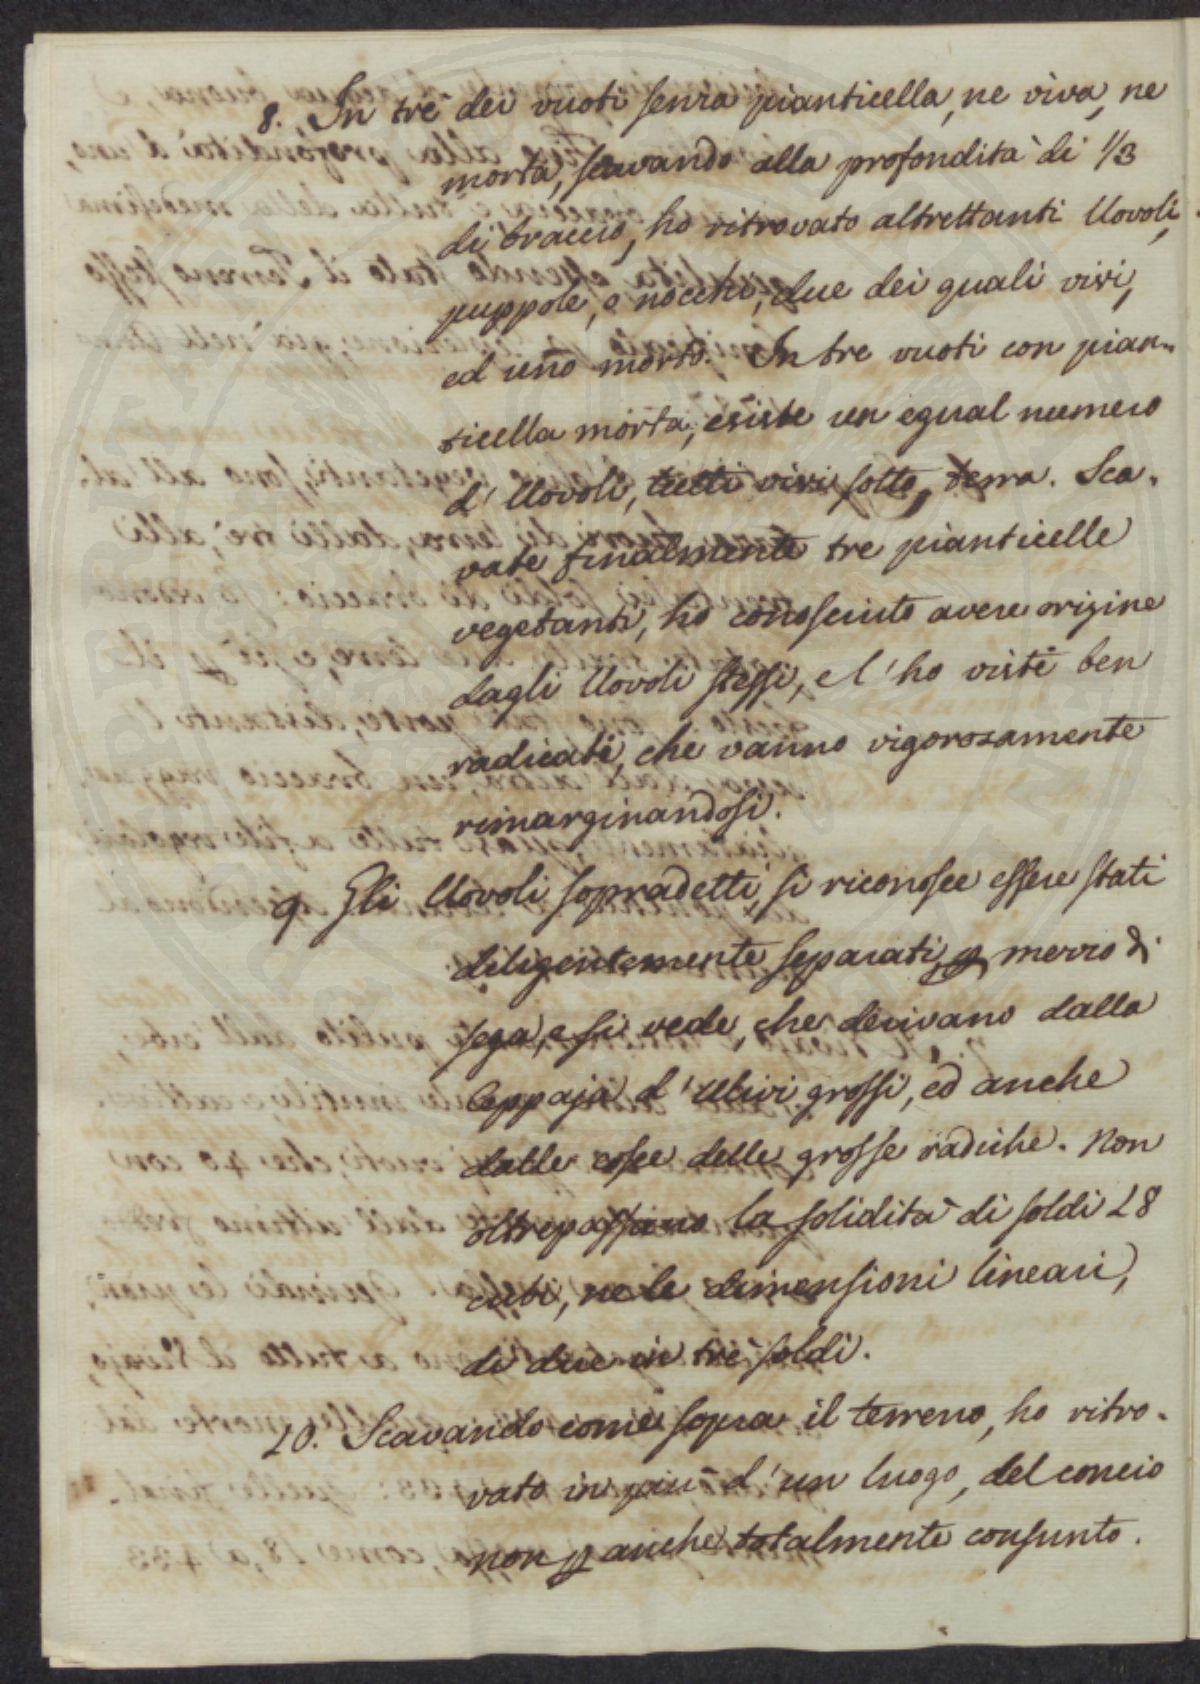 8. In tre dei vuoti senza pianticella, ne viva, ne
morta, scavando alla profondità di 1/3
di braccio, ho ritrovato altrettanti Uovoli,
puppole, o nocchi, due dei quali vivi,
ed uno morto. In tre vuoti con pian-
ticella morta, esiste un egual numero
d'Uovoli, tutti vivi sotto terra. Sca-
vate finalmente tre pianticelle
vegetanti, ho conosciuto avere origine
dagli Uovoli stessi, e l'ho viste ben
radicate, che vanno vigorosamente
rimarginandosi.
9. Gli Uovoli sopradetti si riconosce essere stati
diligentemente separati p mezzo di
sega, e si vede, che derivano dalla
Ceppaja d'Ulivi grossi, ed anche
dalle cosce delle grosse radiche. Non
oltrepassano la solidità di soldi 18
cubi, ne le dimensioni lineari,
di due in tre soldi.
10. Scavando come sopra il terreno, ho ritro-
vato in piu d'un luogo, del concio
non p anche totalmente consunto.